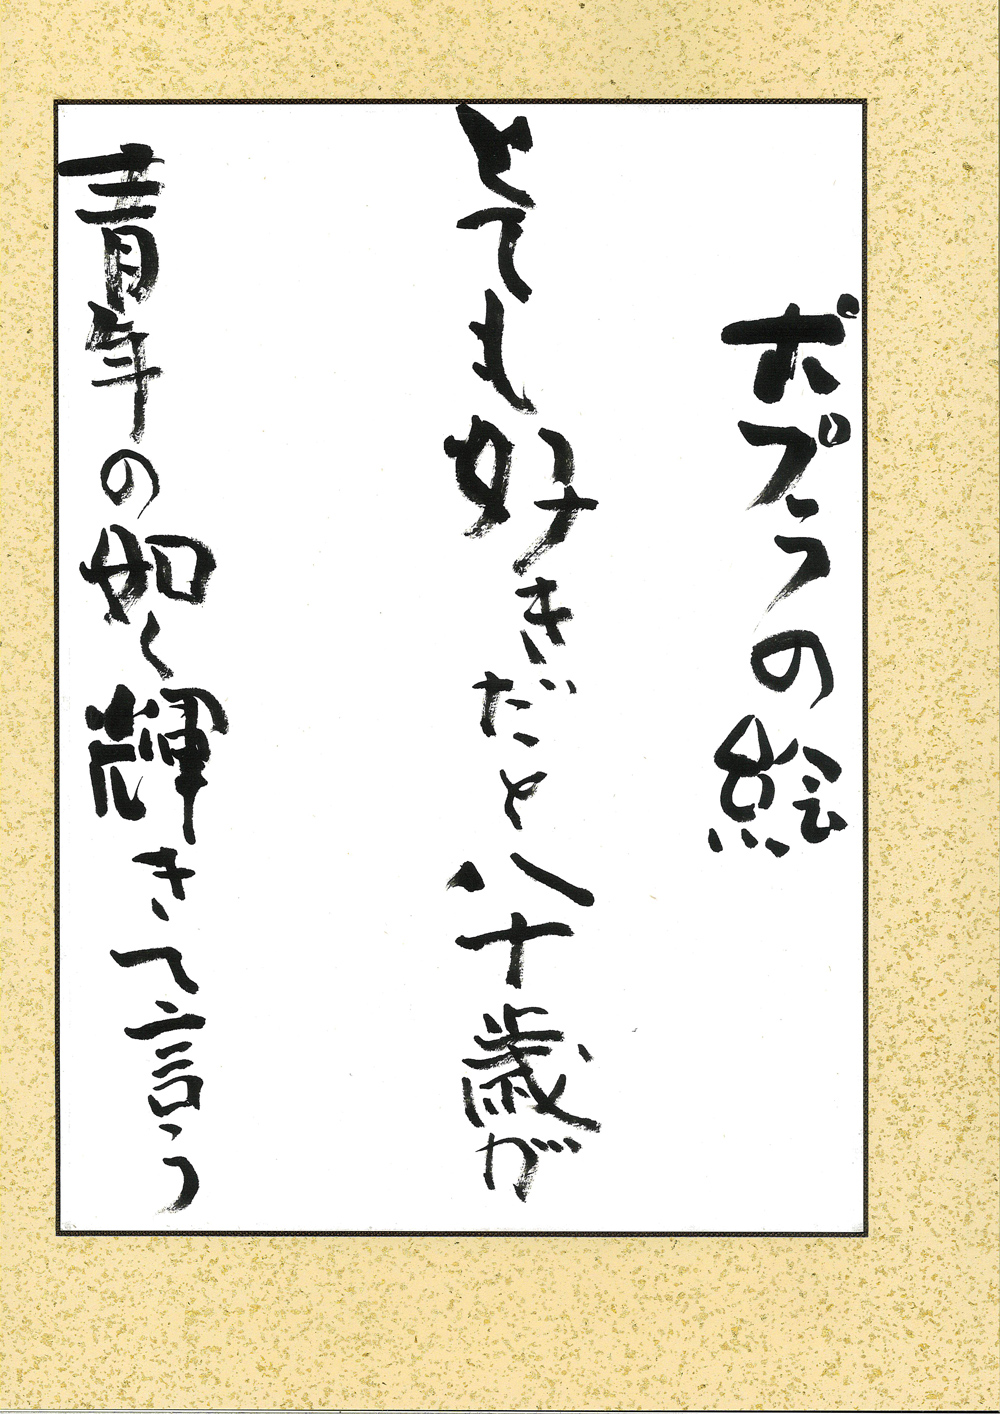 ポプラの絵
とても好きだと八十歳が
青年の如く輝きて言う